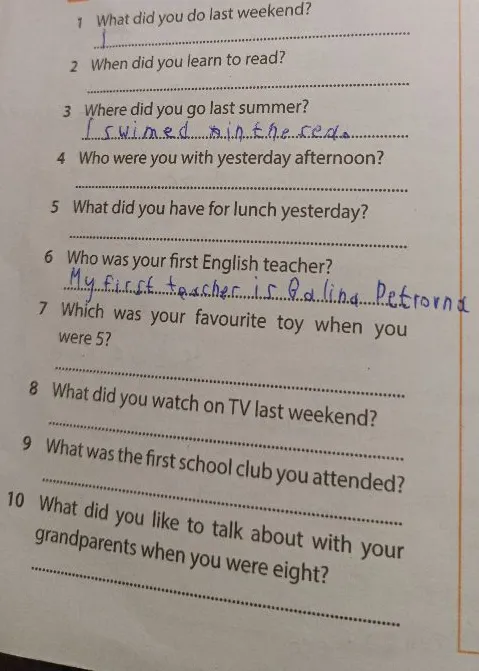 1 What did you do last weekend?
I
2 When did you learn to read?
3 Where did you go last summer?
I swimed in the sea.
4 Who were you with yesterday afternoon?
5 What did you have for lunch yesterday?
6 Who was your first English teacher?
My first teacher is Galina Petrovna
7 Which was your favourite toy when you
were 5?
8 What did you watch on TV last weekend?
9 What was the first school club you attended?
10 What did you like to talk about with your
grandparents when you were eight?